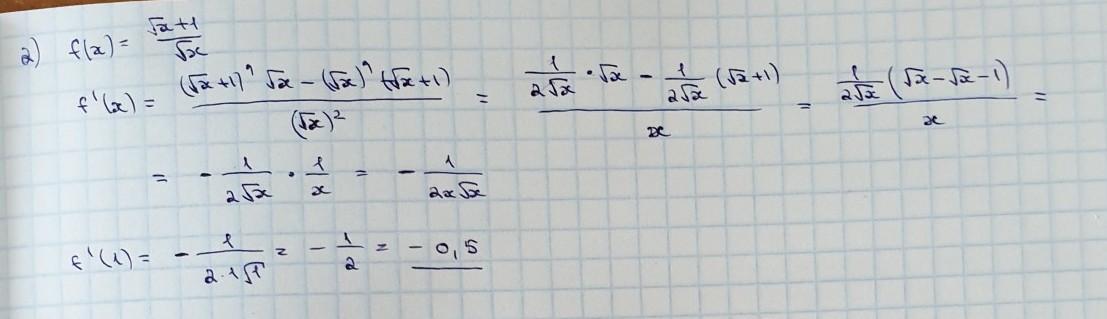 2) f(x) = (√x+1)/√x
f'(x) = ((√x+1)' √x − (√x)' (√x+1))/(√x)² = (1/(2√x) · √x − 1/(2√x) (√x+1))/x = (1/(2√x) (√x−√x−1))/x =
= − 1/(2√x) · 1/x = − 1/(2x√x)
f'(1) = − 1/(2·1√1) = − 1/2 = − 0,5